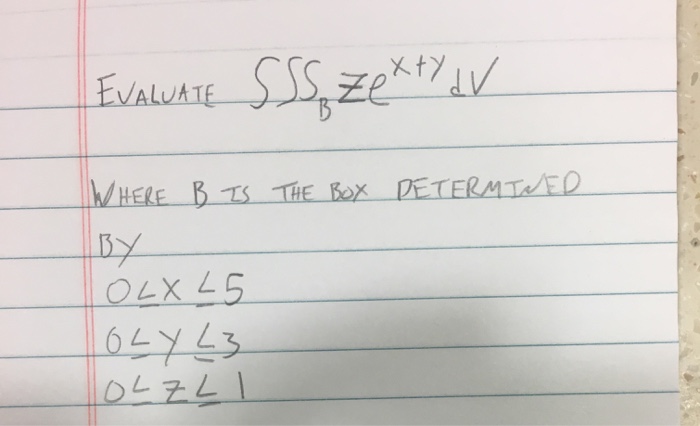 EVALUATE ∭_B ze^{x+y} dV
WHERE B IS THE BOX DETERMINED
BY
0 ≤ x ≤ 5
0 ≤ y ≤ 3
0 ≤ z ≤ 1